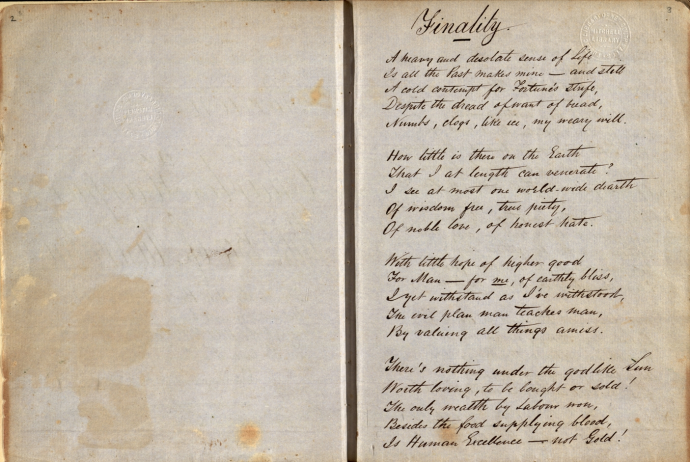 2
3
Finality.
A heavy and desolate sense of Life
Is all the Past makes mine — and still
A cold contempt for Fortune's strife,
Despite the dread of want of bread,
Numbs, clogs, like ice, my weary will.
How little is there on the Earth
That I at length can venerate?
I see at most one world-wide dearth
Of wisdom free, true piety,
Of noble love, of honest hate.
With little hope of higher good
For Man — for me, of earthly bliss,
I yet withstand as I've withstood,
The evil plan man teaches man,
By valuing all things amiss.
There's nothing under the godlike Sun
Worth loving, to be bought or sold!
The only wealth by Labour won,
Besides the food supplying blood,
Is Human Excellence — not Gold!